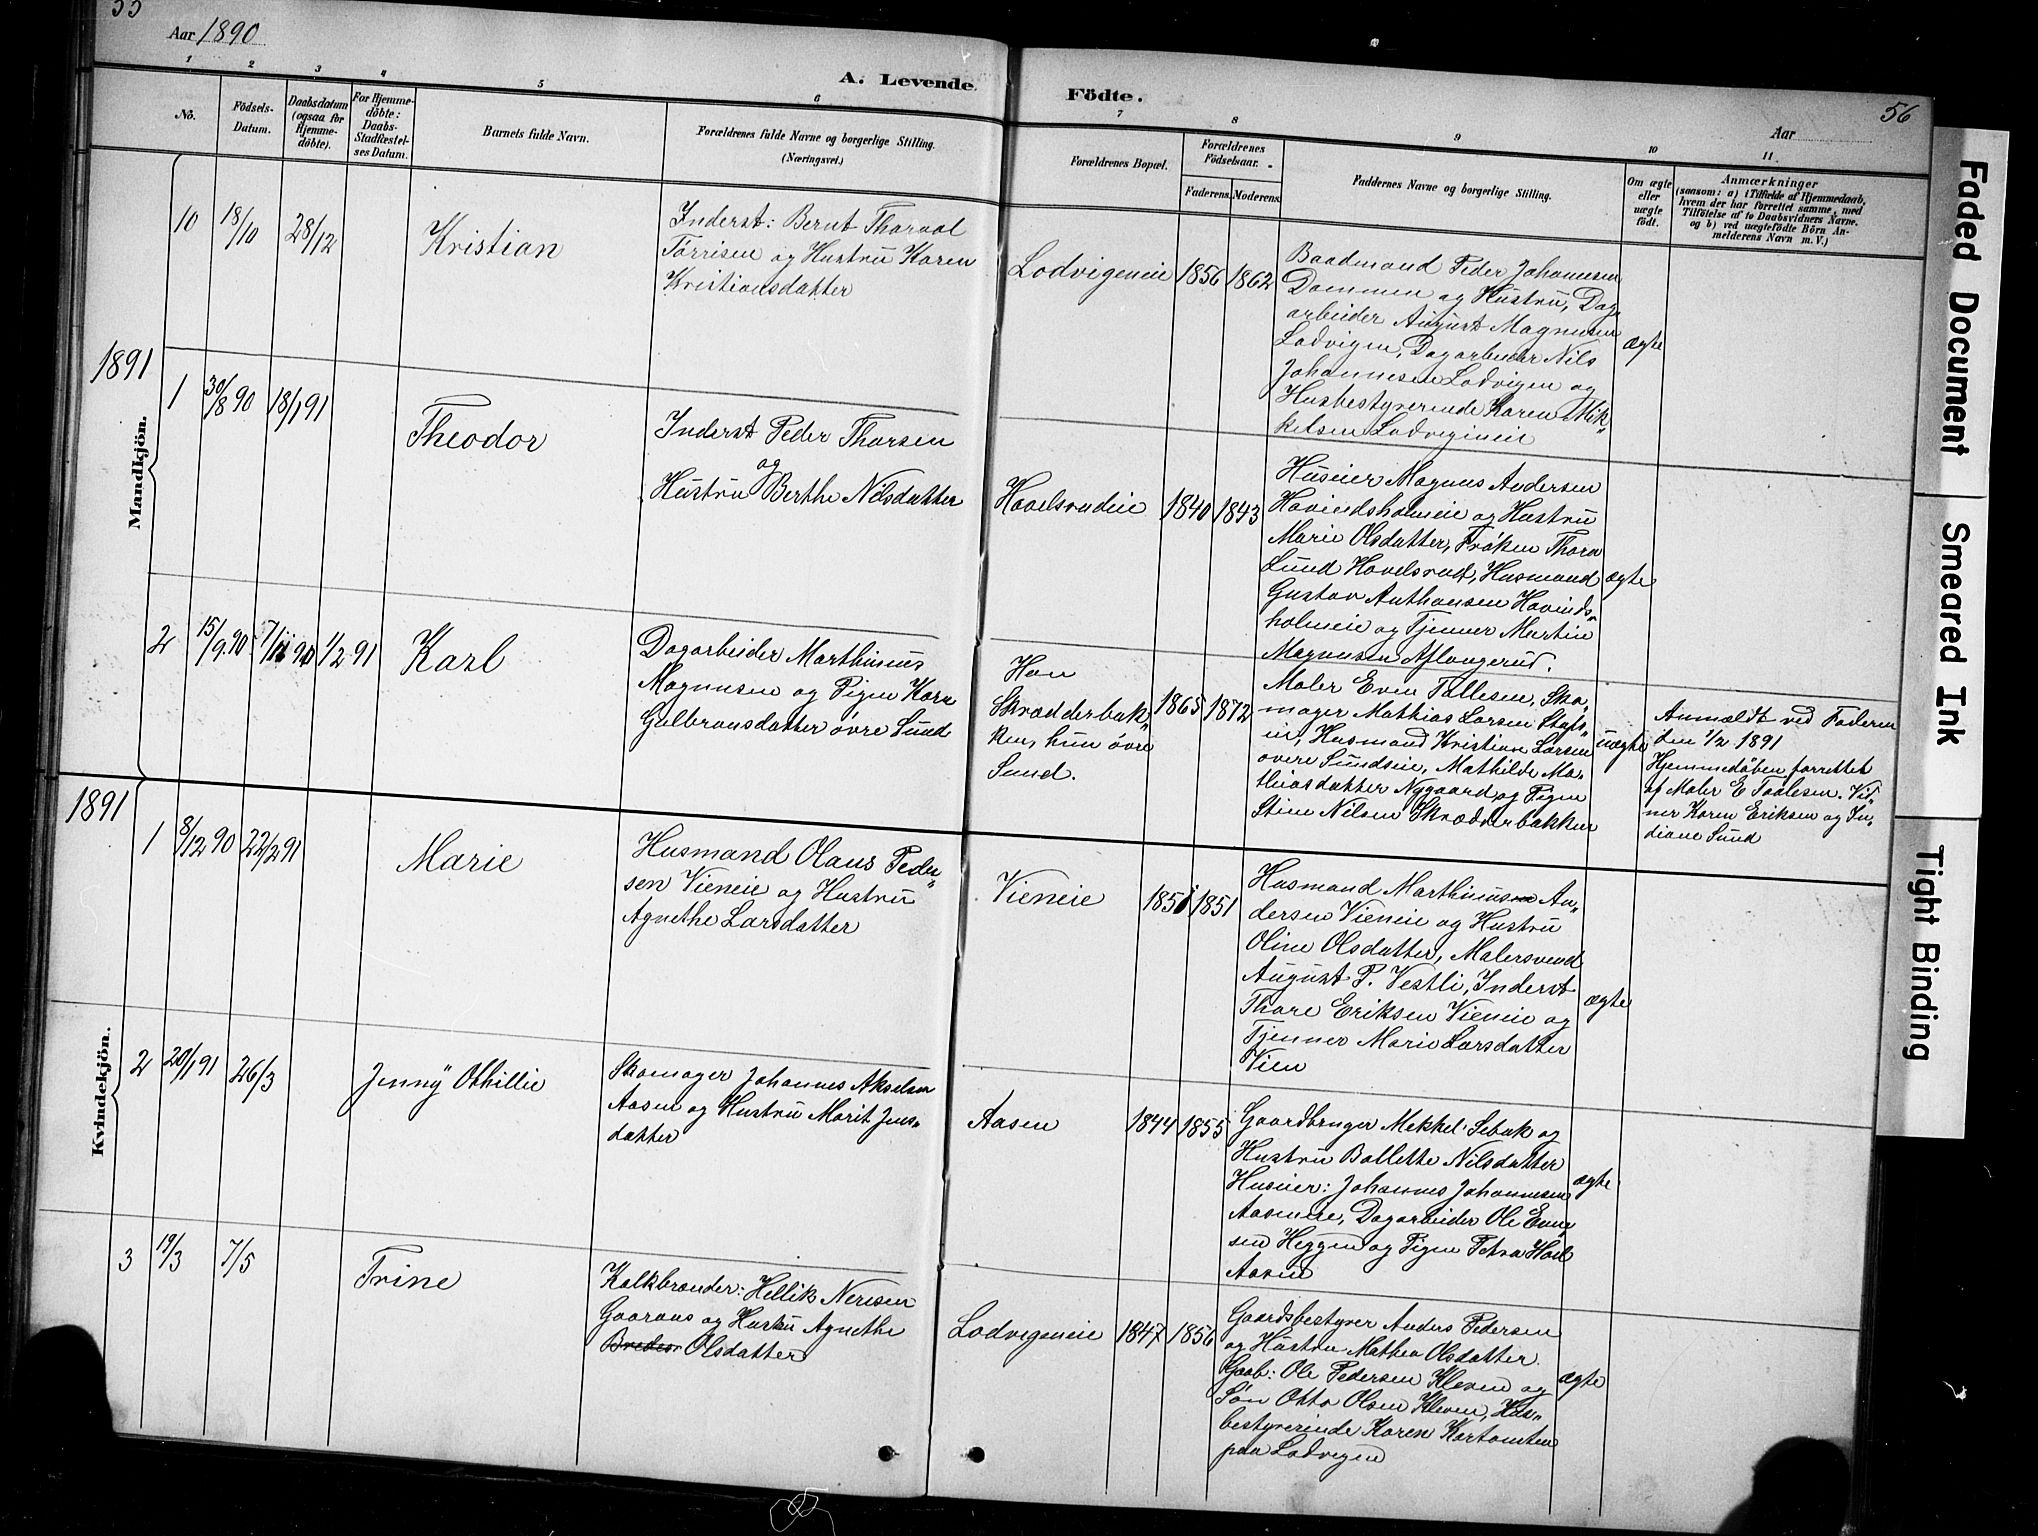 55
Aar 1890
A. Levende
Födte.
Aar
56
1 2 3 4 5 6 7 8 9 10 11
Nô.
Födsels-
Datum.
Daabsdatum
(ogsaa for
Hjemme-
döbte).
For Hjemme-
döbte:
Daabs-
Stadfæstel-
ses Datum.
Barnets fulde Navn.
Forældrenes fulde Navne og borgerlige Stilling.
(Næringsvei.)
Forældrenes Bopæl.
Forældrenes
Födselsaar.
Faderens. Moderens.
Faddernes Navne og borgerlige Stilling.
Om ægte
eller
uægte
födt.
Anmærkninger
(saasom: a) i Tilfælde af Hjemmedaab,
hvem der har forrettet samme, med
Tilföielse af to Daabsvidners Navne.
og b) ved uægtefödte Börn An-
melderens Navn m. V.)
10 18/10 28/12 Kristian
Inderst: Bernt Thorval
Tørrisen og Hustru Karen
Kristiansdatter
Lodvigeneie 1856 1862
Baadmand Peder Johannesen
Dommen og Hustru, Dag
arbeider August Magnusen
Lodvigen, Dagarbeider Nils
Johannesen Lodvigen og
Husbestyrerinde Karen Mik-
kelsen Lodvigeneie
ægte
1891
Mandkjön.
1 30/8 90 18/1 91 Theodor
Inderst Peder Thorsen
og
Hustru Berthe Nilsdatter
Hovelsrudeie 1840 1843
Huseier Magnus Andersen
Hovindsholmeie og Hustru
Marie Olsdatter, Frøken Thora
Lund Hovelsrud, Husmand
Gustav Anthonsen Hovinds-
holmeie og Tjener Martin
Magnusen Aflangerud.
ægte
2 15/9.90 7/11 90 1/2 91 Karl
Dagarbeider Marthinius
Magnusen og Pigen Karen
Gulbransdatter øvre Sund
Han
Skrædderbak-
ken, hun øvre
Sund.
1865 1872
Maler Even Tollesen, Sko-
mager Mathias Larsen Stafs-
eie, Husmand Kristian Larsen
øvere Sundseie, Mathilde Ma-
thiasdatter Nygaard og Pigen
Stine Nilsen Skrædderbakken
uægte
Anmeldt ved Faderen
den 1/2 1891
Hjemmedøben forrettet
af Maler E Tollesen. Vid-
ner Karen Eriksen og In-
diane Sund
1891
Kvindekjön.
1 8/12 90 22/2 91 Marie
Husmand Olaus Peder-
sen Vieneie og Hustru
Agnethe Larsdatter
Vieneie 1851 1851
Husmand Marthinius An-
dersen Vieneie og Hustru
Oline Olsdatter, Malersvend
August P. Vestli, Inderst
Thore Eriksen Vieneie og
Tjener Marie Larsdatter
Vien
ægte
2 20/1 91 26/3 Jenny Othillie
Skomager Johannes Akselsen
Aasen og Hustru Marit Jens-
datter
Aasen 1844 1855
Gaardbruger Mekkel Sebak og
Hustru Bollette Nilsdatter
Huseier: Johannes Johannesen
Aaseneie, Dagarbeider Ole Even-
sen Heggen og Pigen Petra Hoel
Aasen
ægte
3 19/3 7/5 Trine
Kalkbrænder: Hellik Nerisen
Gaaraas og Hustru Agnethe
Bredes Olsdatter
Lodvigeneie 1847 1856
Gaardsbestyrer Anders Pedersen
og Hustru Mathea Olsdatter.
Gaab: Ole Pedersen Kleven og
Søn Otto Olsen Kleven, Hus-
bestyrerinde Karen Kartomten
paa Lodvigen
ægte
Faded Document
Smeared Ink
Tight Binding